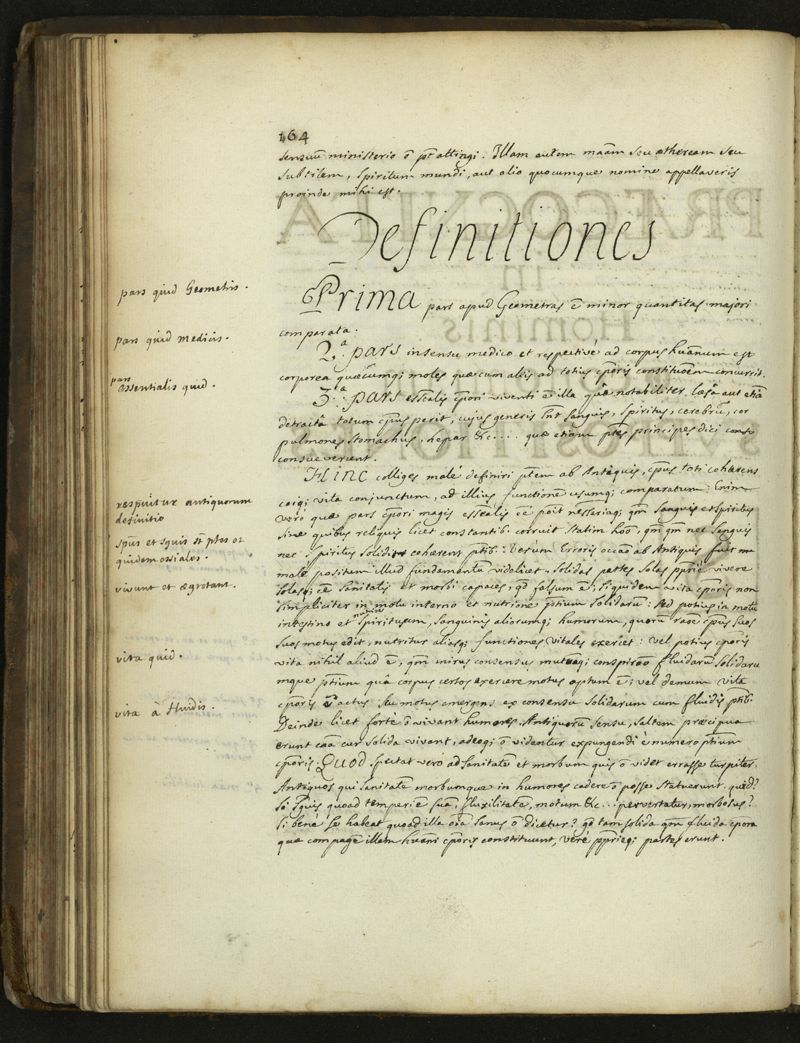 164
sensuum ministerio õ pt attingi. Illam autem maãm seu ætheream seu
subtilem, spiritum mundi, aut alio quocumque nomine appellaveris
proinde mihi est.
Definitiones
pars quid Geometris.
Prima pars apud Geometras ẽ minor quantitas majori
comparata.
pars quid medicis.
2.a pars in sensu medico et respectivè ad corpus huãnum est
corporea quæcumq; moles quæ cum aliis ad totius cporis constitutõem concurrit.
pars essentialis quid.
3.a pars essẽalis cpori viventi ẽ illa quâ notabiliter læsâ aut etiã
detractâ totum cpus perit, cujus generis snt sanguis, spiritus, cerebrũ, cor
pulmones stomachus, hepar &c.... quæ etiam ptes principes dici
consueverunt.
Hinc colliges malè definiri ptem ab Antiquis, cpus toti cohærens
coiq; vita conjunctum, ad illius functionẽ usumq; comparatum: Enim
respuitur antiquorum
definitio
verò quæ pars cpori magis essẽalis ẽe poit nessariaq; qm sanguis et spiritus
sine quibus reliquis licet constantib. corruit statim hoõ, qm nec sanguis
spũs et sguis st ptes et
quidem essiales.
nec spiritus solidis cohærent ptib. Verùm Erroris occaõ ab Antiquis fuit
malè positum illud fundamentũ videlicet, solidas partes solas ppriè vivere
vivunt et ægrotant.
solasq; ẽe sanitatis et morbi capaces, qd falsum ẽ; siquidem vita cporis non
simpliciter in motu interno et nutrine ptium solidarũ: sed potius in motu
intestino et nativo spirituum, sanguinis aliorumq; humorum, quorũ raõe cpus suos
suos motus edit, nutritur aliasq; functiones vitales exercet: vel potius cporis
vita quid.
vita nihil aliud ẽ, qm mirus consensus mutuaq; conspiraõ fluidarũ solidaru
mque ptium quâ corpus certos exercere motus aptum ẽ; vel demum vita
vita à fluidis.
cporis ẽ actus seu motus emergens ex consensu solidarum cum fluidis ptib.
Deinde licet fortè õ vivant humores Antiquorũ sensu, saltem præcipua
erunt caã cur solida vivant, adeoq; õ videntur expungendi è numero ptium
cporis. Quod spectat vero ad sanitatẽ et morbum quis õ videt errasse turpiter
Antiquos qui sanitatẽ morbumque in humores cadere õ posse statuerunt. quid?
Si sguis quoad temperiẽ suã, fluxilitatẽ, motum &c... pervertatur, morbosus?
Si benè se habeat quoad illa oĩa sanus õ dicetur? qd tam solida qm fluida cpora
quæ compagẽ illam huãni cporis constituunt, verè ppriẽq; partes erunt.